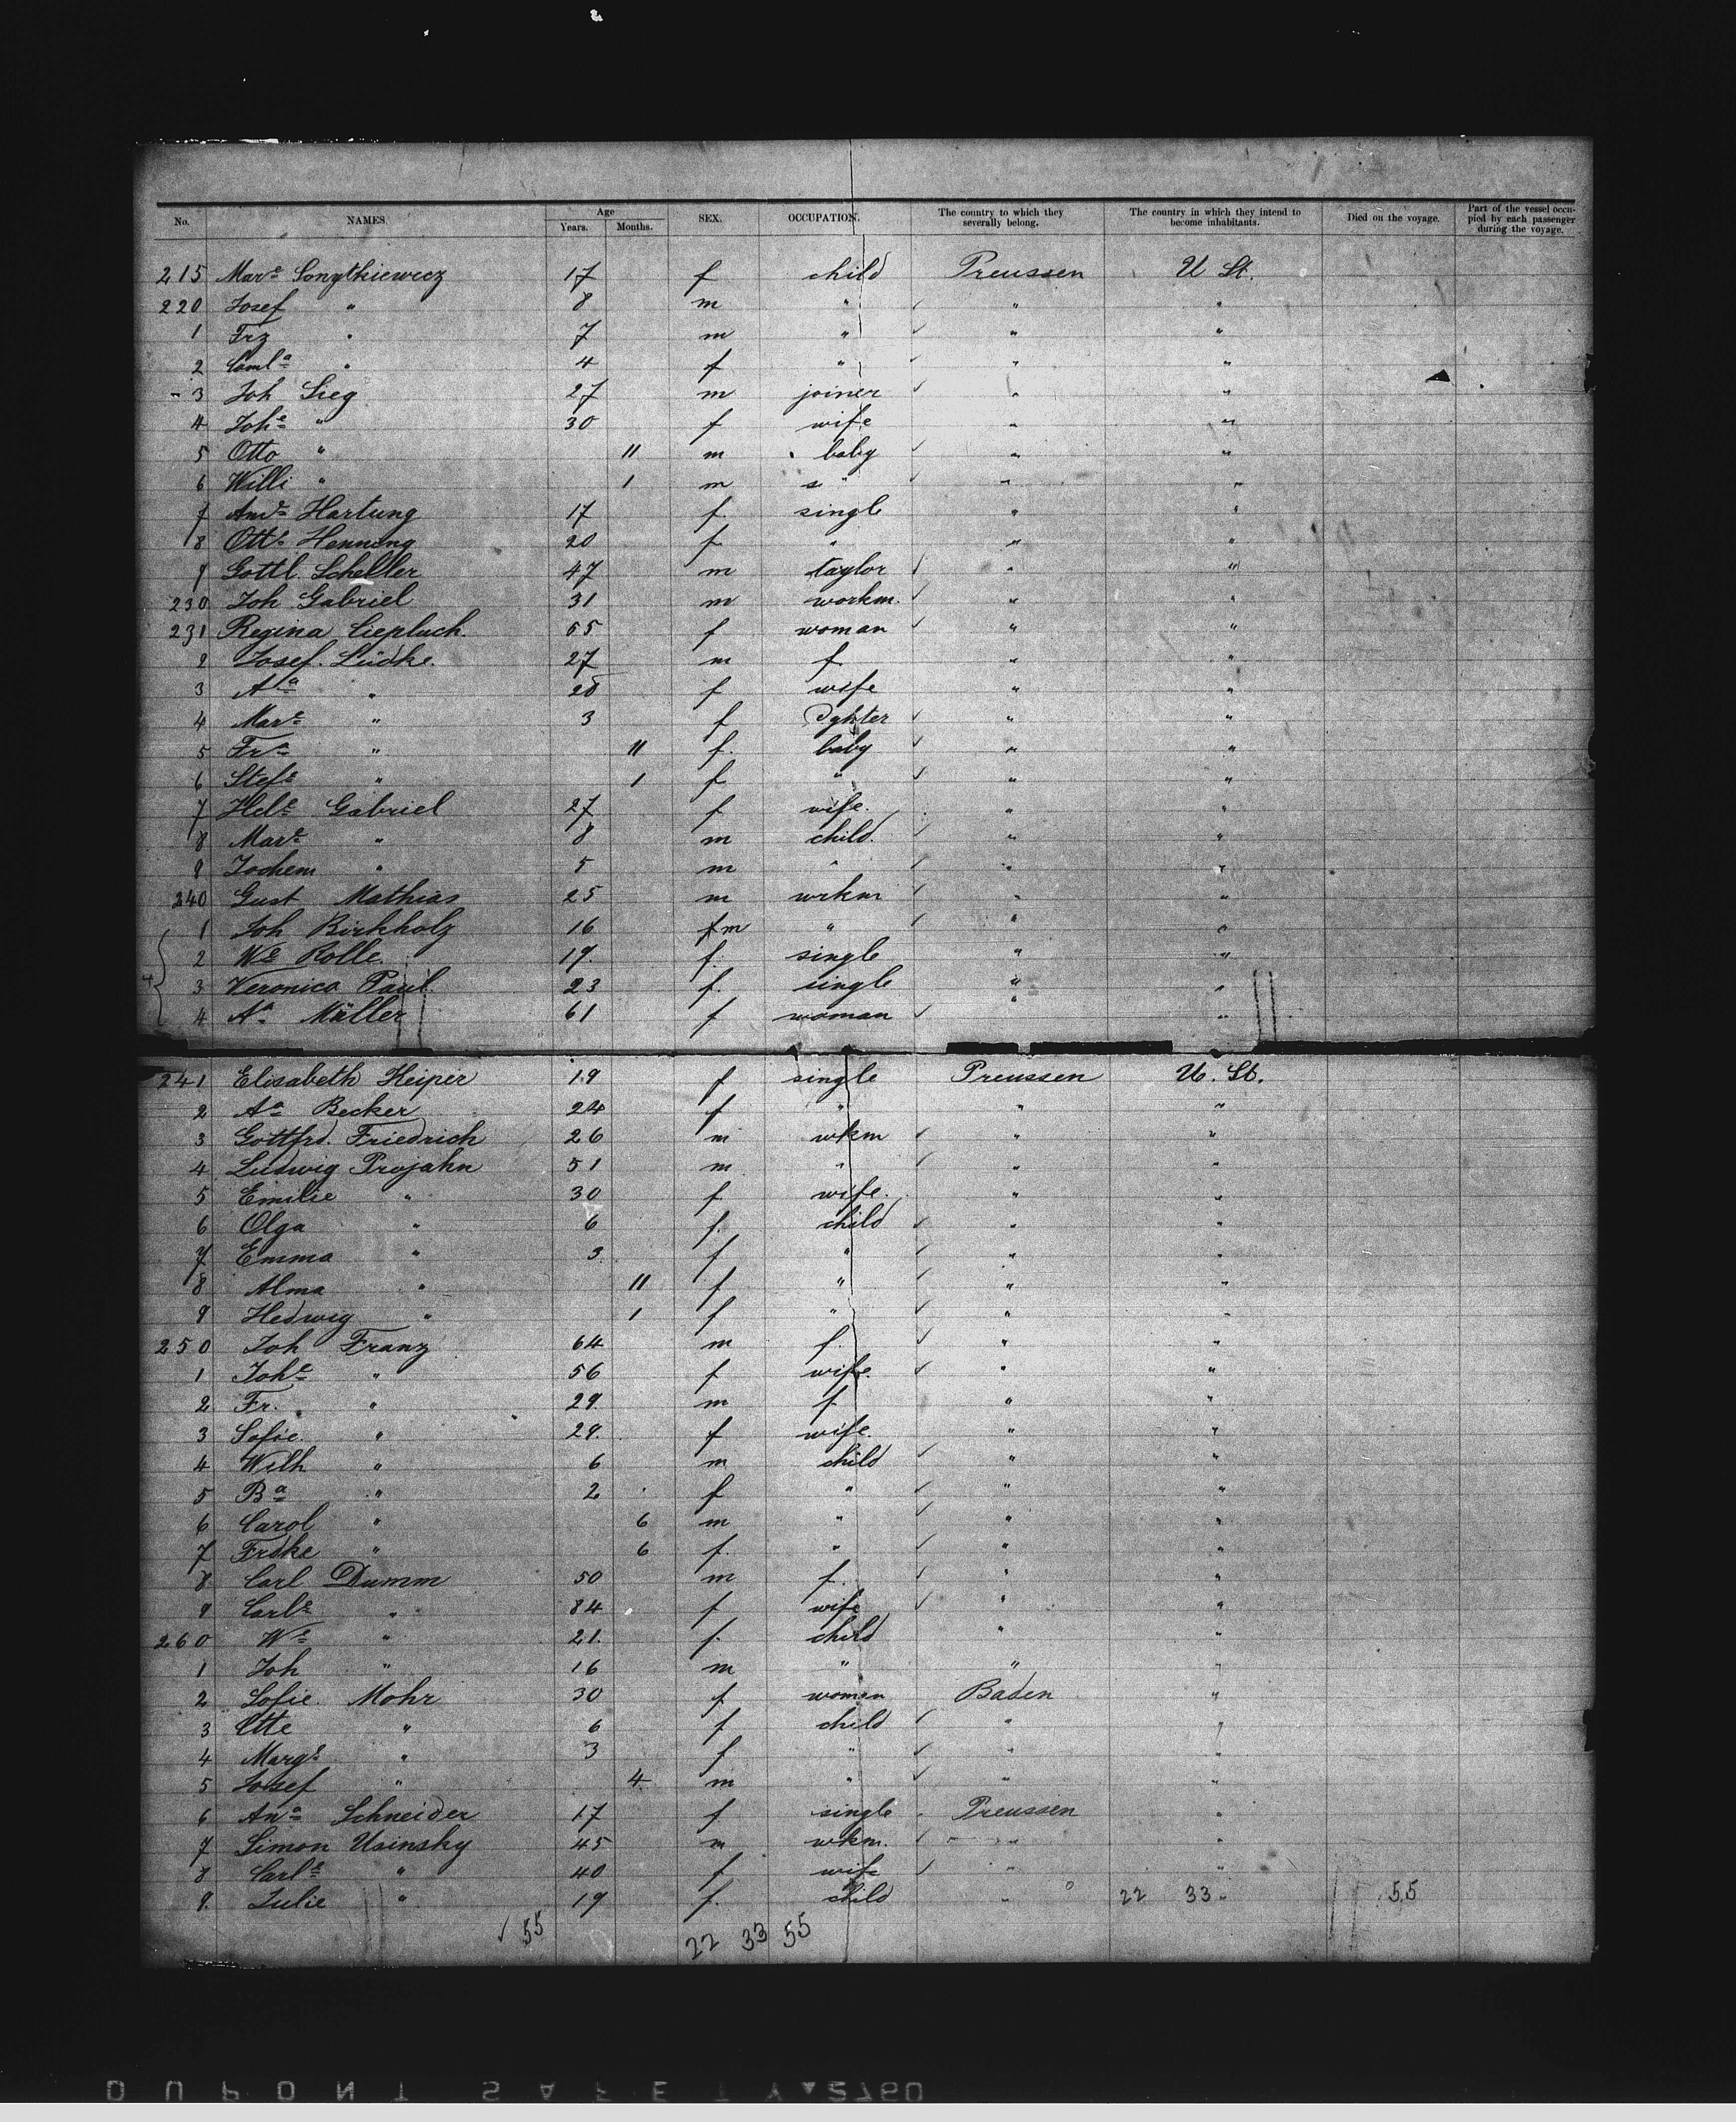 No. NAMES. Age Years. Months. SEX. OCCUPATION. The country to which they severally belong. The country in which they intend to become inhabitants. Died on the voyage. Part of the vessel occupied by each passenger during the voyage.
215 Mare 17 f child Preussen U St.
220 Josef " 8 m " " "
1 Frz " 7 m " " "
2 " 4 f " " "
3 Joh Sieg 27 m joiner " "
4 Johe " 30 f wife " "
5 Otto " 11 m baby " "
6 Willi " 1 m " " "
7 Hartung 17 f. single " "
8 Otte Henning 20 f " " "
9 Gottl. Scheller 47 m taylor " "
230 Joh Gabriel 31 m workm. " "
231 Regina Ciepluch. 65 f woman " "
2 Josef. Lüdke. 27 m f " "
3 Aa " 28 f wife " "
4 Mare " 3 f Dghter " "
5 Fra " 11 f. baby " "
6 Stefe " 1 f " " "
7 Hele Gabriel 27 f wife. " "
8 Mare " 8 m child. " "
9 Jochem " 5 m " " "
240 Gust Mathias 25 m wrkm " "
1 Joh Birkholz 16 m " " "
2 We Rolle. 19. f. single " "
3 Veronica Paul. 23 f. single " "
4 Aa Müller 61 f woman " "
241 Elisabeth Heiper 19 f single Preussen U. St.
2 Aa Becker 24 f " " "
3 Gottfrd. Friedrich 26 m wkm " "
4 Ludwig Projahn 51 m " " "
5 Emilie " 30 f wife. " "
6 Olga " 6 f. child " "
7 Emma " 3. f " " "
8 Alma " 11 f " " "
9 Hedwig " 1 f " " "
250 Joh Franz 64 m f. " "
1 Johe " 56 f wife. " "
2 Fr. " 29. m f " "
3 Sofie. " 29. f wife. " "
4 Wilh " 6 m child " "
5 Ba " 2 f " " "
6 Carol " 6 m " " "
7 Frdke " 6 f. " " "
8 Carl Dumm 50 m f. " "
9 Carle " 84 f wife " "
260 We " 21. f. child " "
1 Joh " 16 m " " "
2 Sofie Mohr 30 f woman Baden "
3 Otte " 6 f child " "
4 Marge " 3 f " " "
5 Josef " 4. m " " "
6 Ana Schneider 17 f single Preussen "
7 Simon Usinsky 45 m wkm. " "
8 Carle " 40 f wife " "
9. Julie " 19 f. child " 22 33 " 55
55 22 33 55
DUPONT SAFETY 2760